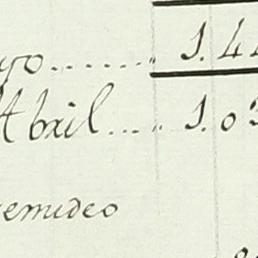 yo........ 1.44
Abril.... 1.03
emideo